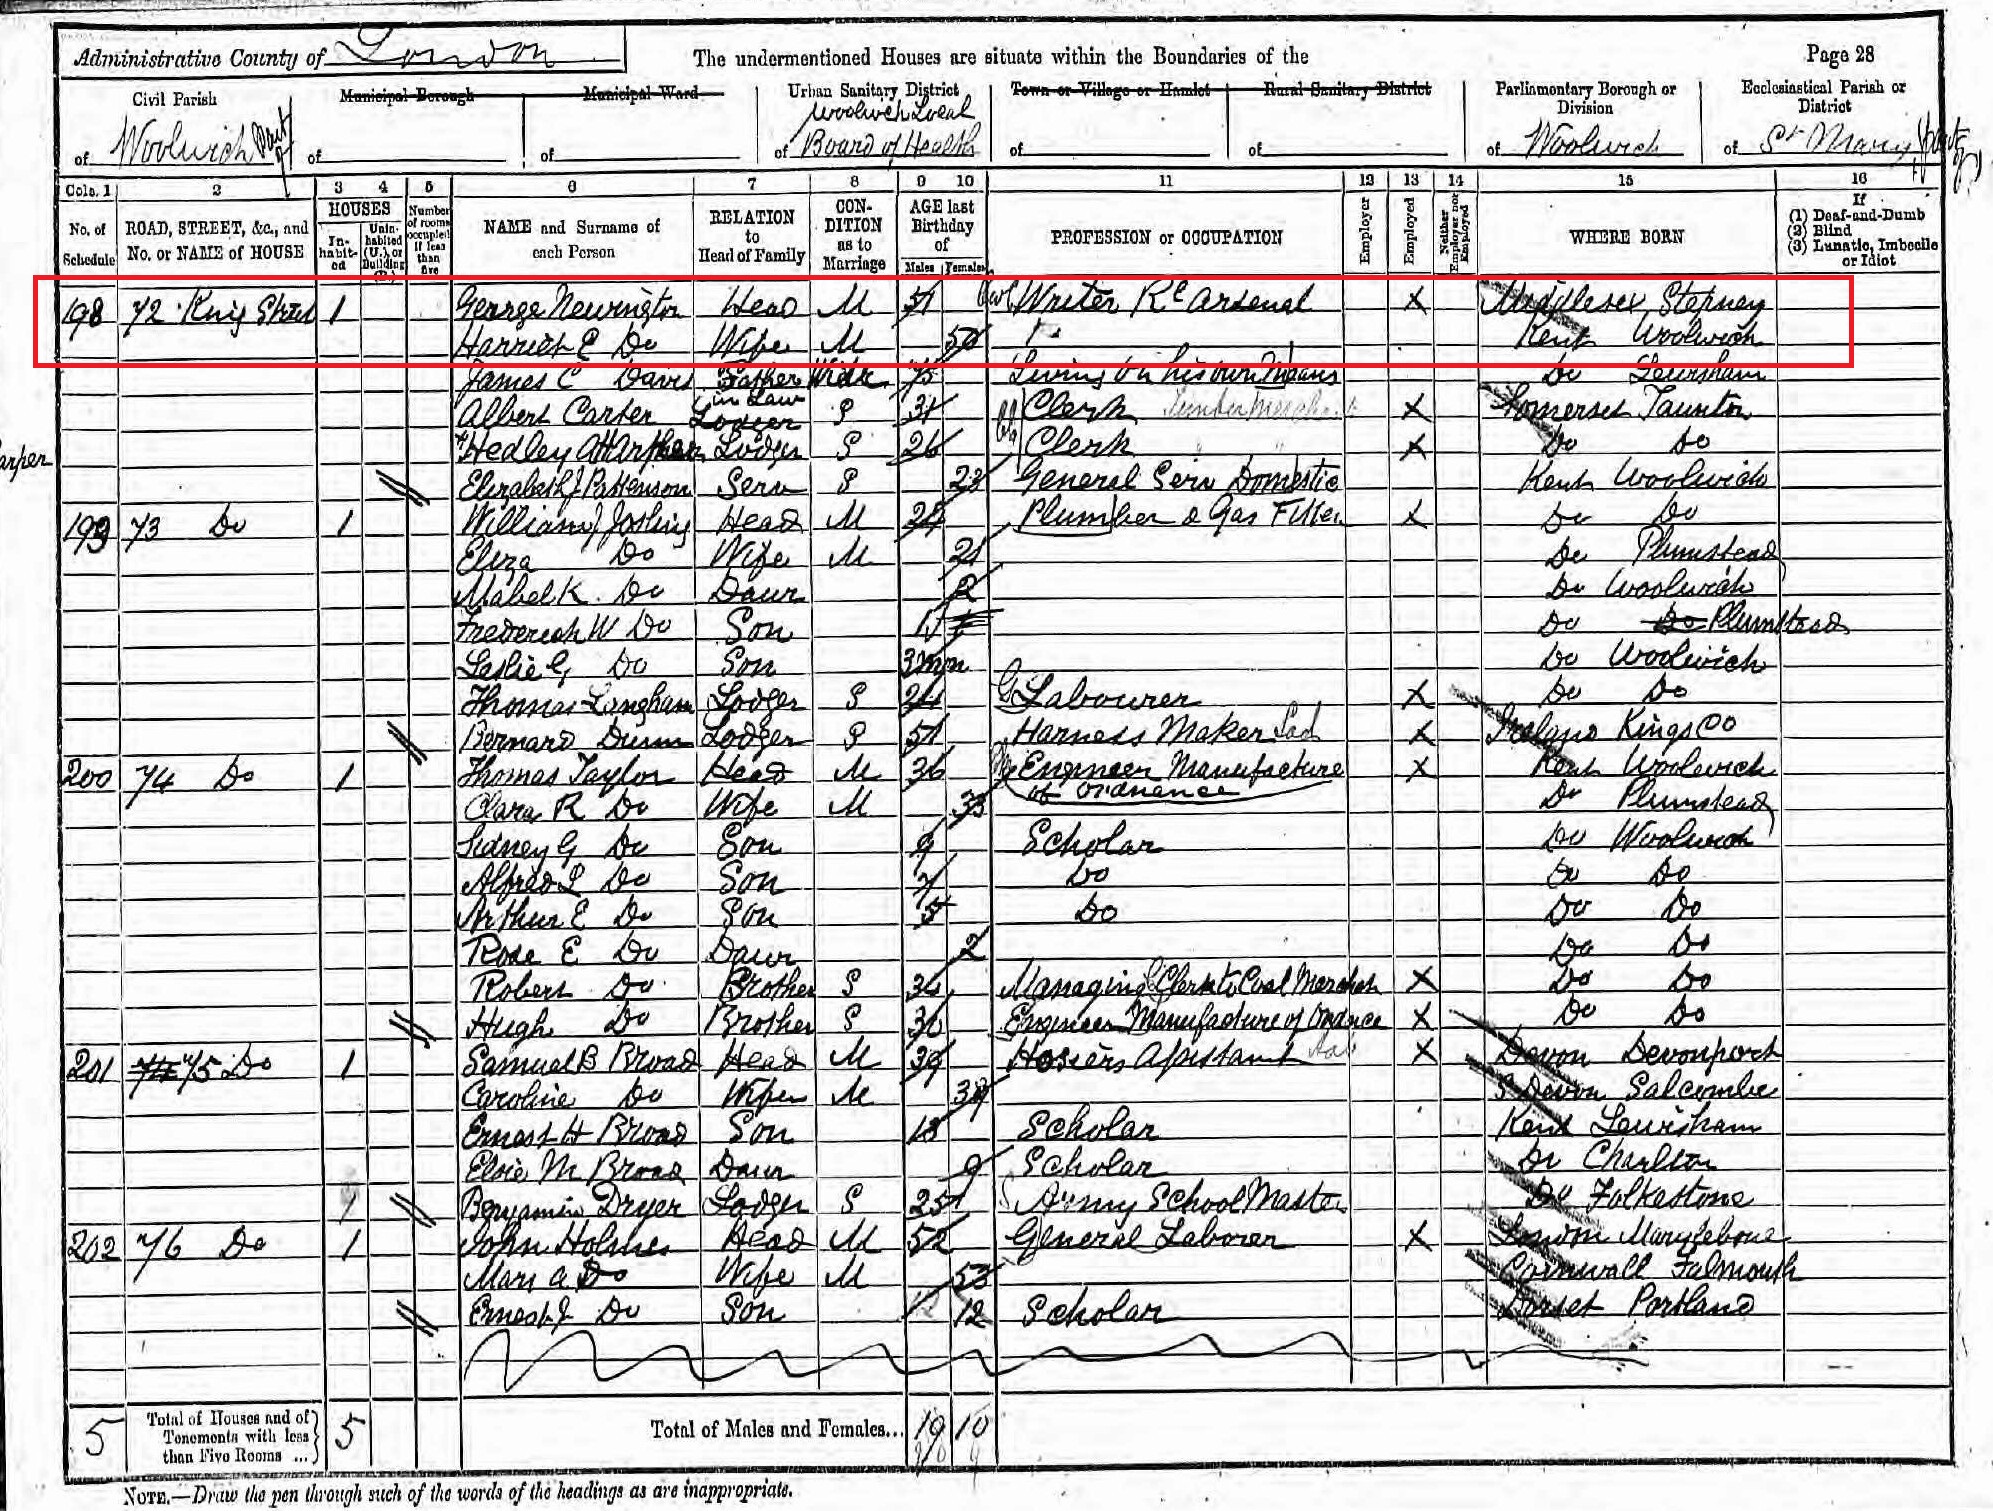 Administrative County of London
The undermentioned Houses are situate within the Boundaries of the
Page 28
Civil Parish
of Woolwich Part of
Municipal Borough
of
Municipal Ward
of
Urban Sanitary District
of Woolwich Local
Board of Health
Town or Village or Hamlet
of
Rural Sanitary District
of
Parliamentary Borough or
Division
of Woolwich
Ecclesiastical Parish or
District
of St Mary, part of
Cols. 1 2 3 4 5 6 7 8 9 10 11 12 13 14 15 16
No. of
Schedule
ROAD, STREET, &c., and
No. or NAME of HOUSE
HOUSES
In-
habit-
ed
Unin-
habited
(U.), or
Building
(B.)
Number
of rooms
occupied
if less
than
five
NAME and Surname of
each Person
RELATION
to
Head of Family
CON-
DITION
as to
Marriage
AGE last
Birthday
of
Males Females
PROFESSION or OCCUPATION
Employer
Employed
Neither
Employer nor
Employed
WHERE BORN
If
(1) Deaf-and-Dumb
(2) Blind
(3) Lunatic, Imbecile
or Idiot
198 72 King Street 1 George Newington Head M 51 Writer Rl Arsenal X Middlesex Stepney
Harriet E Do Wife M 50 Kent Woolwich
James C Davis Father in Law Widr 75 Living on his own Means Do Lewisham
Albert Carter Lodger S 31 Clerk X Somerset Taunton
arper
Hedley Lodger S 26 Clerk X Do Do
Elizabeth J Pattenson Serv S 23 General Serv Domestic Kent Woolwich
199 73 Do 1 William J Josling Head M Plumber & Gas Fitter X Do Do
Eliza Do Wife M 21 Do Plumstead
Mabel K Do Daur 2 Do Woolwich
Frederick W Do Son 1 Do Do Plumstead
Leslie G Do Son 3 mon Do Woolwich
Thomas Langham Lodger S 24 Labourer X Do Do
Bernard Dunn Lodger S 51 Harness Maker X Ireland Kings Co
200 74 Do 1 Thomas Taylor Head M 36 Engineer Manufacture X Kent Woolwich
of Ordnance
Clara R Do Wife M 33 Do Plumstead
Sidney G Do Son 9 Scholar Do Woolwich
Alfred L Do Son 7 Do Do Do
Arthur E Do Son 5 Do Do Do
Rose E Do Daur 2 Do Do
Robert Do Brother S 34 Managing Clerk to Coal Merchat X Do Do
Hugh Do Brother S 30 Engineer Manufacture of Ordnce X Do Do
201 74 75 Do 1 Samuel B Broad Head M 39 Hosiers Assistant X Devon Devonport
Caroline Do Wife M 39 S Devon Salcombe
Ernest H Broad Son 13 Scholar Kent Lewisham
Elsie M Broad Daur 9 Scholar Do Charlton
Benjamin Dryer Lodger S 25 Army School Master Do Folkestone
202 76 Do 1 John Holmes Head M 52 General Laborer X London Marylebone
Mary A Do Wife M 53 Cornwall Falmouth
Ernest J Do Son 12 Scholar Dorset Portland
5
Total of Houses and of
Tenements with less
than Five Rooms ...
5
Total of Males and Females...
19 10
NOTE.—Draw the pen through such of the words of the headings as are inappropriate.